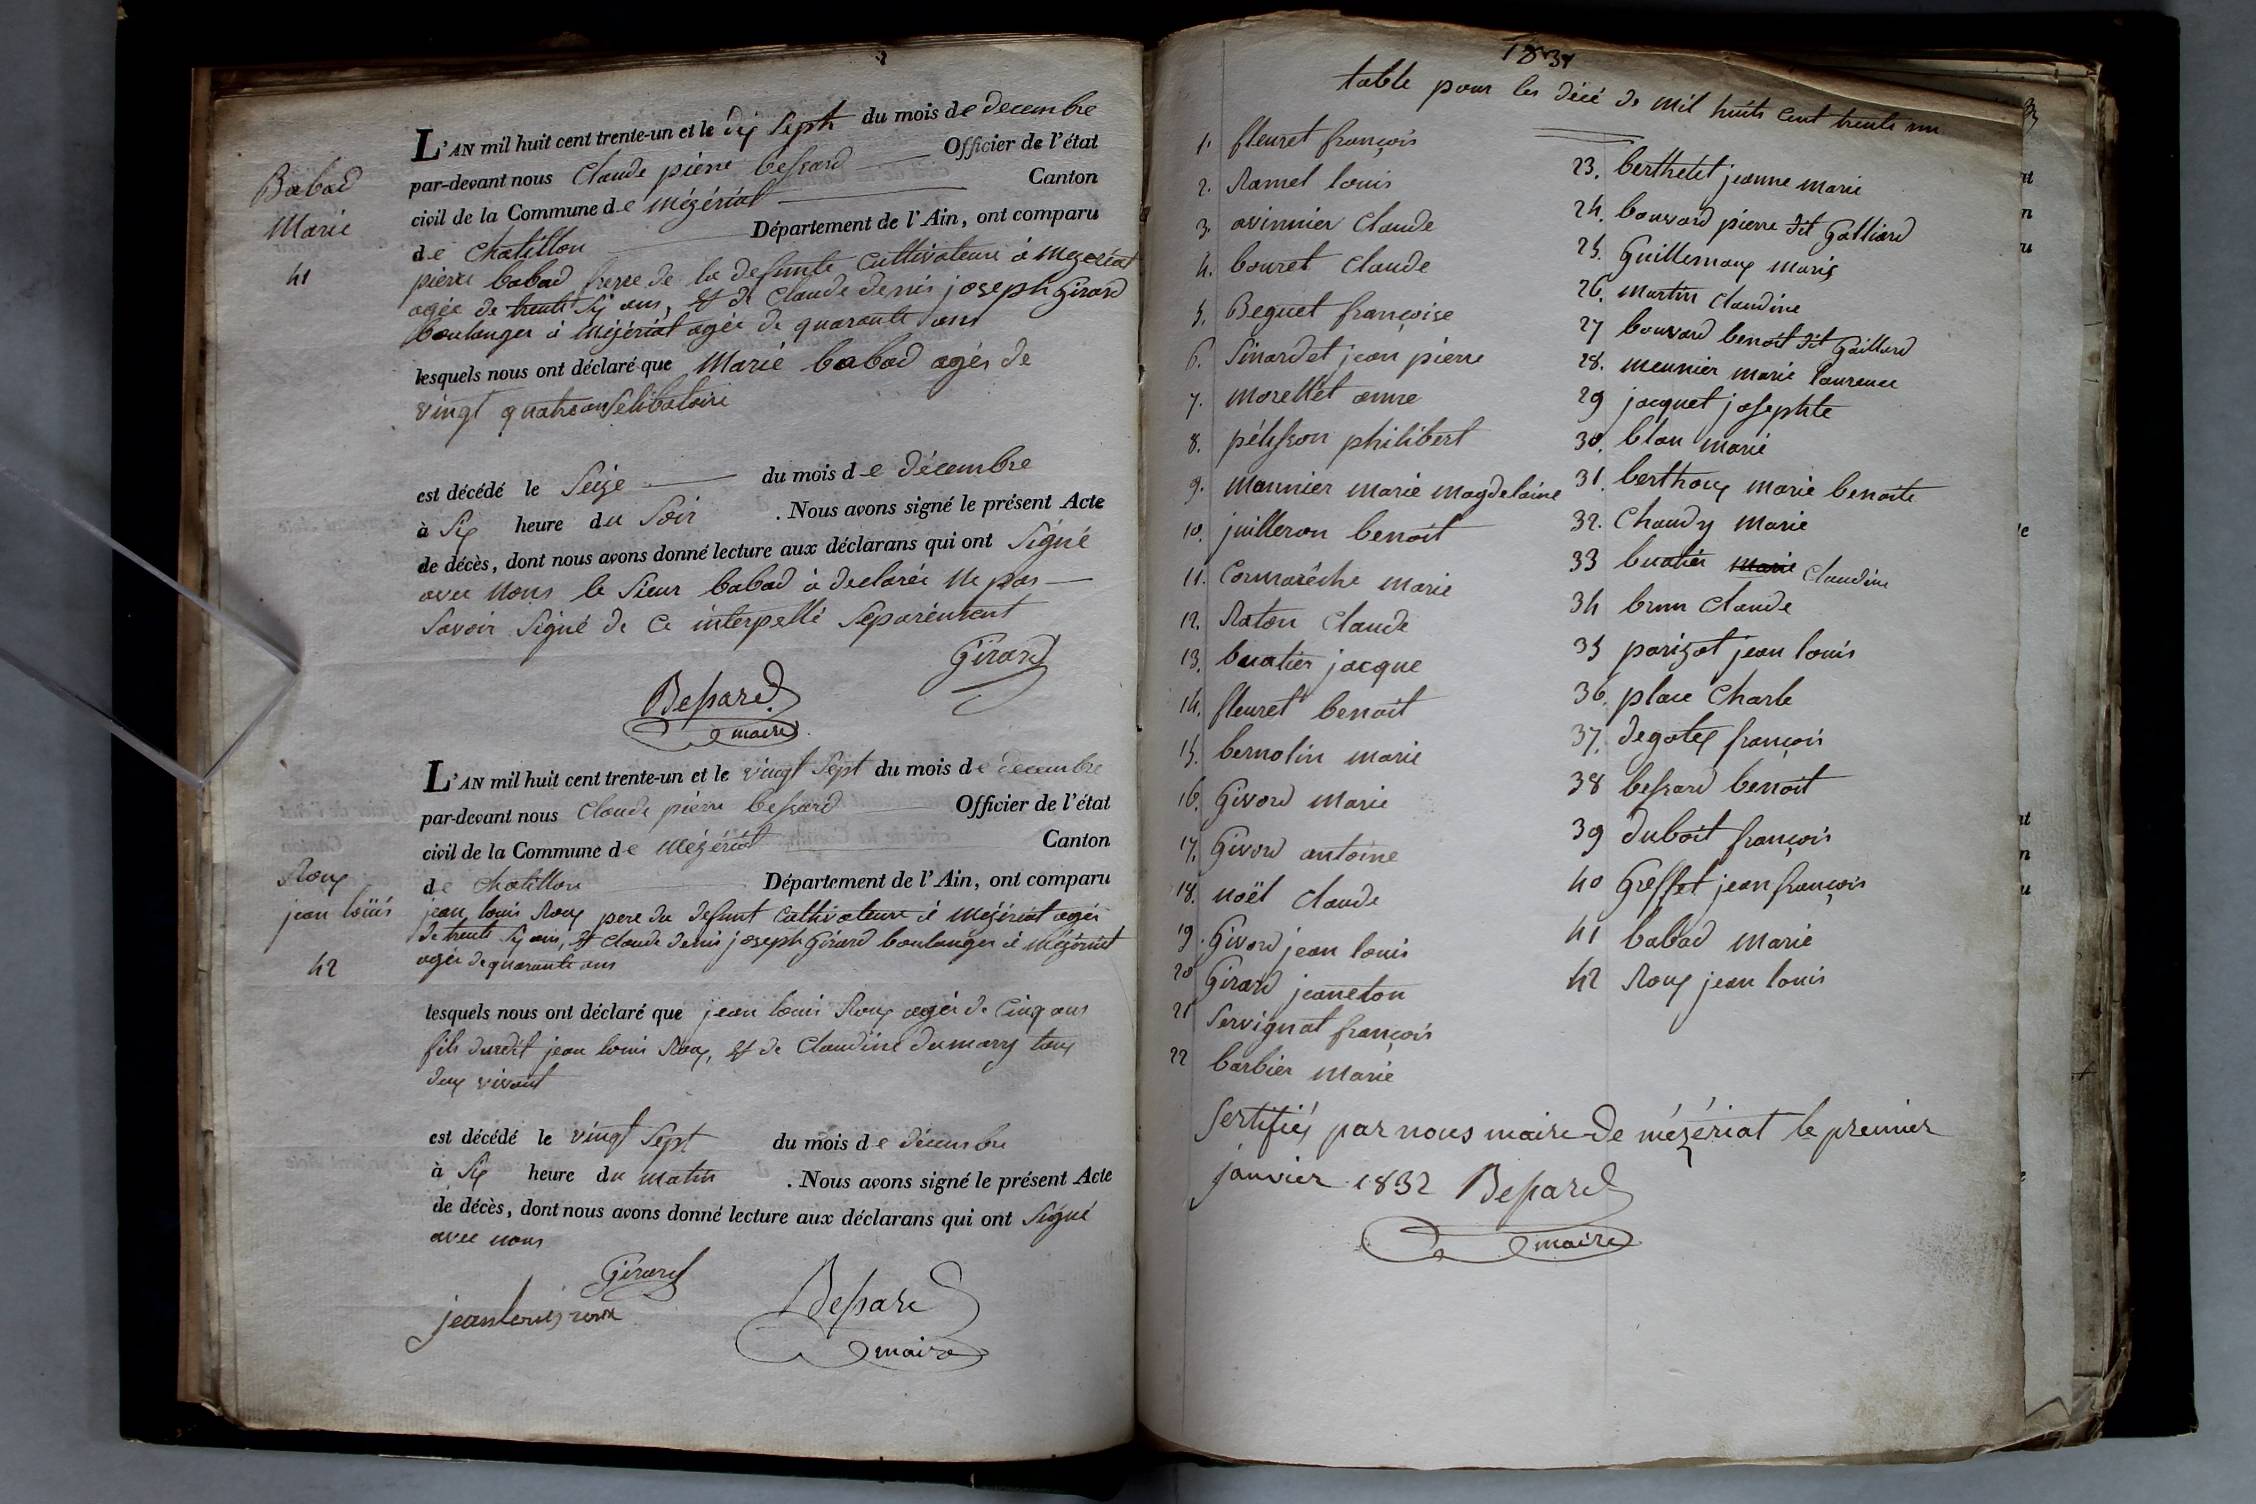 Babad
Marie
41
L'AN mil huit cent trente-un et le dix Sept du mois de decembre
par-devant nous Claude pierre bessard Officier de l'état
civil de la Commune de Mézériat Canton
de Chatillon Département de l'Ain, ont comparu
pierre babad frere de la defunte Cultivateure à Mezeriat
agée de trente Six ans, & de Claude denis joseph Girard
boulanger à Mézériat agée de quarante ans
lesquels nous ont déclaré que Marie babad agés de
vingt quatre ans Selibataire
est décédé le Seize du mois de décembre
à Six heure du Soir . Nous avons signé le présent Acte
de décès, dont nous avons donné lecture aux déclarans qui ont Signé
avec Nous le Sieur babad à declarée Ne pas
Savoir Signé de Ce interpellé Separément
Girard
Bessard
maire
Roux
jean loüis
42
L'AN mil huit cent trente-un et le vingt Sept du mois de decembre
par-devant nous Claude pierre bessard Officier de l'état
civil de la Commune de Mézériat Canton
de Chatillon Département de l'Ain, ont comparu
jean louis Roux pere du defunt Cultivateure à Mézériat agés
de trente Six ans, & Claude denis joseph Girard boulanger à Mézériat
agée de quarante ans
lesquels nous ont déclaré que jean louis Roux agés de Cinq ans
fils dudit jean louis Roux, & de Claudine dumary tous
deux vivant
est décédé le vingt Sept du mois de décembre
à Six heure du matin . Nous avons signé le présent Acte
de décès, dont nous avons donné lecture aux déclarans qui ont Signé
avec nous
Girard
jean louis roux
Bessard
maire
1831
table pour les décé de Mil huits Cent trente un
1. fleuret françois
2. Ramel louis
3. avinnier Claude
4. bouret Claude
5. Beguet françoise
6. Sinardet jean pierre
7. Morellet anne
8. pélisson philibert
9. Maunnier Marie Magdelaine
10. juilleron benoit
11. Cormarêche Marie
12. Raton Claude
13. buatier jacque
14. fleuret benoit
15. bernolin Marie
16. Givord Marie
17. Givord antoine
18. noël Claude
19. Givord jean louis
20 Girard jeaneton
21 Servignat françois
22 barbier Marie
23. berthelet jeanne Marie
24. bouvard pierre dit Galliard
25. Guillemaux Marie
26. Martin Claudine
27 bouvard benoit dit Gaillard
28. Meunier Marie laurence
29 jacquet josephte
30. blan Marie
31. berthoux Marie benoite
32. Chaudy Marie
33 buatier Marie Claudine
34 brun Claude
35 parizot jean louis
36. place Charle
37. degotex françois
38 bessard benoit
39 duboit françois
40 Greffet jean françois
41 babad Marie
42 Roux jean louis
Sertifiés par nous maire de mézériat le premier
janvier 1832 Bessard
maire